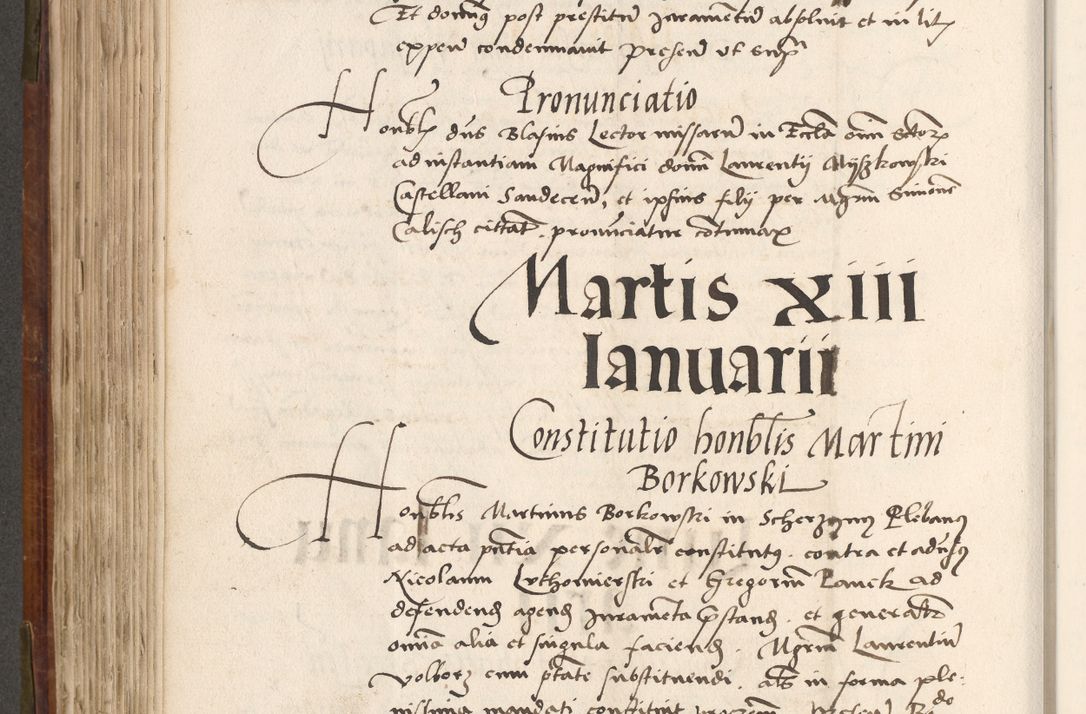 Et dominus post prestitum Iuramentum absoluit et in lit
expen condemnauit presen vt supra
Pronunciatio
Honbls dns Blasius Lector missarum in Eccla omn sctorum
ad instantiam Magnifici domini Laurentij Myszkowski
Castellani Sandecen, et ipsius filij per Mgrm Simonem
Calisch cittat. pronunciatur cotumax
Martis XIII
Ianuarii
Constitutio honblis Martini
Borkowski
Honblis Martinus Borkowski in Plebanus
ad acta pntia personalr constitutus. contra et aduersus
Nicolaum et Gregorium ad
defendend agend Iuramenta prestand. et generalr
omnia alia et singula faciend. Mgrm Laurentium
Volborz cum ptate substituendi. als in forma ple-
nissima mandati constituit presen